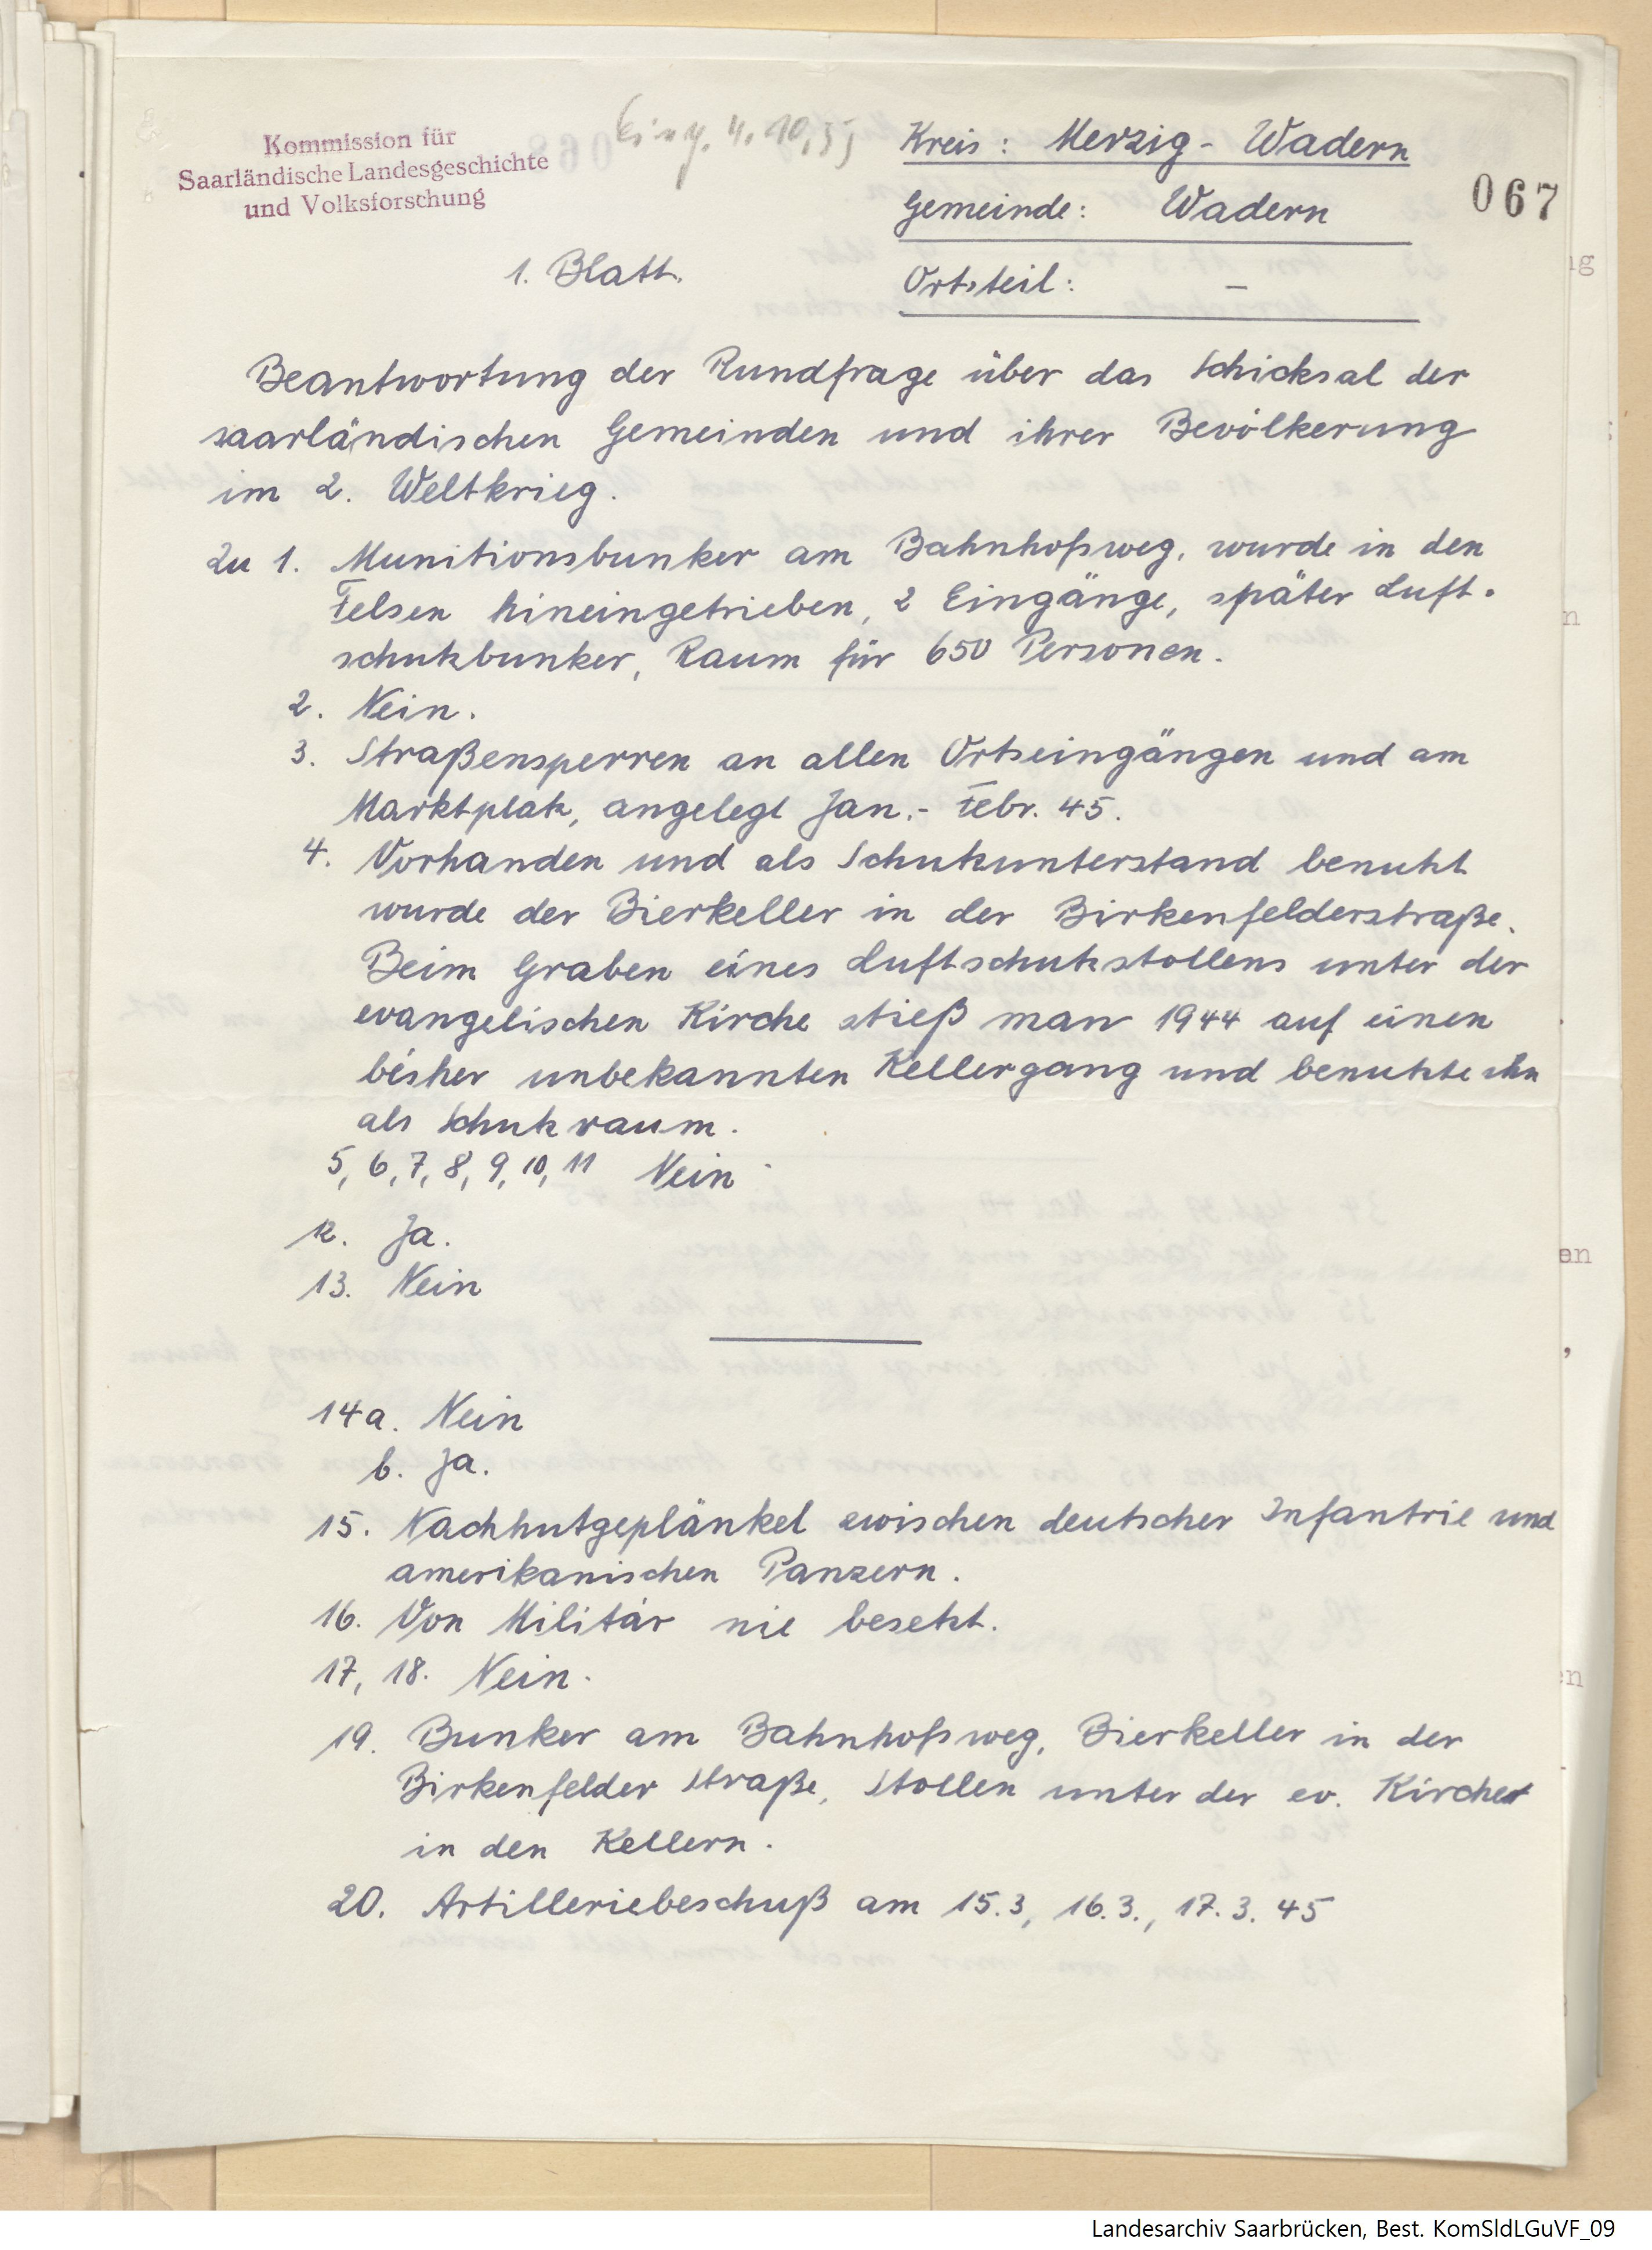 Kommission für
Saarländische Landesgeschichte
und Volksforschung
Eing. 4.10.55
Kreis: Merzig-Wadern
Gemeinde: Wadern
067
1. Blatt.
Ortsteil: –
Beantwortung der Rundfrage über das Schicksal der
saarländischen Gemeinden und ihrer Bevölkerung
im 2. Weltkrieg.
Zu 1. Munitionsbunker am Bahnhofsweg, wurde in den
Felsen hineingetrieben, 2 Eingänge, später Luft-
schutzbunker, Raum für 650 Personen.
2. Nein.
3. Straßensperren an allen Ortseingängen und am
Marktplatz, angelegt Jan.- Febr. 45.
4. Vorhanden und als Schutzunterstand benutzt
wurde der Bierkeller in der Birkenfelderstraße.
Beim Graben eines Luftschutzstollens unter der
evangelischen Kirche stieß man 1944 auf einen
bisher unbekannten Kellergang und benutzte ihn
als Schutzraum.
5, 6, 7, 8, 9, 10, 11 Nein
12. Ja.
13. Nein
14a. Nein
b. Ja.
15. Nachhutgeplänkel zwischen deutscher Infantrie und
amerikanischen Panzern.
16. Von Militär nie besetzt.
17, 18. Nein.
19. Bunker am Bahnhofsweg, Bierkeller in der
Birkenfelder Straße, Stollen unter der ev. Kirche
in den Kellern.
20. Artilleriebeschuß am 15.3, 16.3., 17.3.45
Landesarchiv Saarbrücken, Best. KomSldLGuVF_09